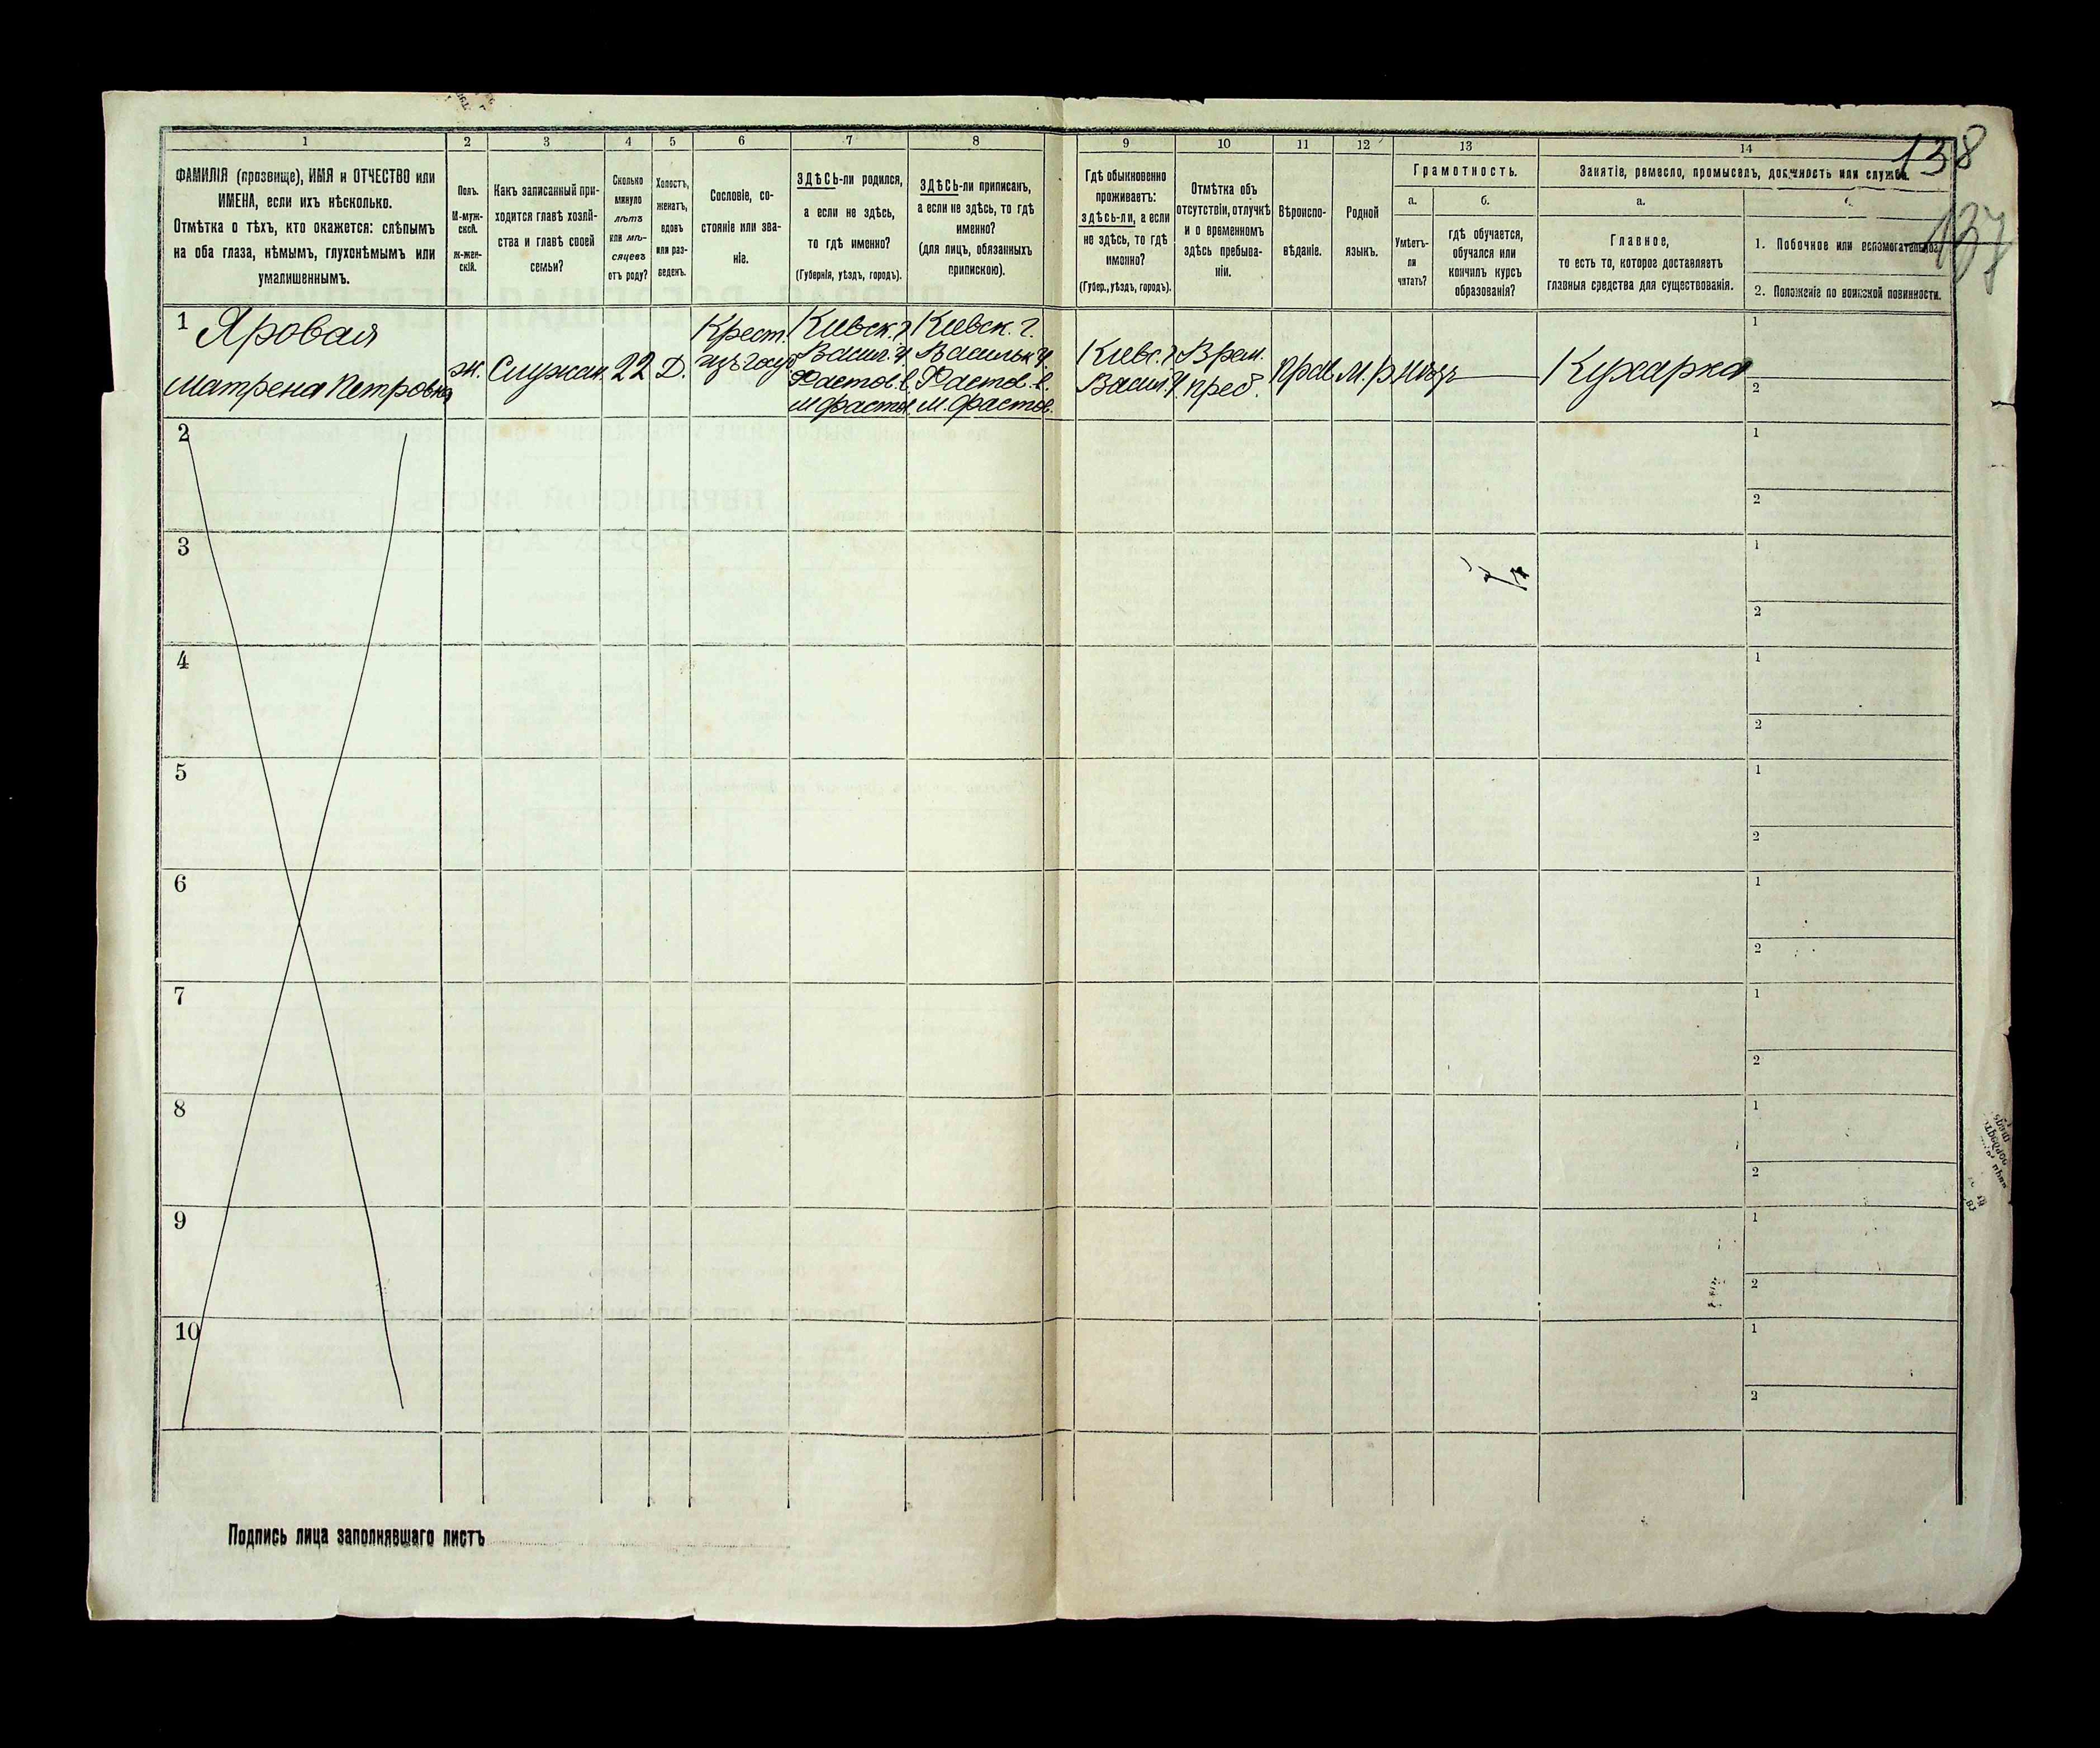 138
137
1
2
3
4
5
6
7
8
9
10
11
12
13
14
ФАМИЛІЯ (прозвище), ИМЯ и ОТЧЕСТВО или
ИМЕНА, если ихъ нѣсколько.
Отмѣтка о тѣхъ, кто окажется: слѣпымъ
на оба глаза, нѣмымъ, глухонѣмымъ или
умалишеннымъ.
Полъ.
М-муж-
ской.
ж-жен-
скій.
Какъ записанный при-
ходится главѣ хозяй-
ства и главѣ своей
семьи?
Сколько
минуло
лѣтъ
или мѣ-
сяцевъ
отъ роду?
Холостъ,
женатъ,
вдовъ
или раз-
веденъ.
Сословіе, со-
стояніе или зва-
ніе.
ЗДѢСЬ-ли родился,
а если не здѣсь,
то гдѣ именно?
(Губернія, уѣздъ, городъ).
ЗДѢСЬ-ли приписанъ,
а если не здѣсь, то гдѣ
именно?
(для лицъ, обязанныхъ
припискою).
Гдѣ обыкновенно
проживаетъ:
здѣсь-ли, а если
не здѣсь, то гдѣ
именно?
(Губер., уѣздъ, городъ).
Отмѣтка объ
отсутствіи, отлучкѣ
и о временномъ
здѣсь пребыва-
ніи.
Вѣроиспо-
вѣданіе.
Родной
языкъ.
Грамотность.
а.
Умѣетъ-
ли
читать?
б.
гдѣ обучается,
обучался или
кончилъ курсъ
образованія?
Занятіе, ремесло, промыселъ, должность или служба.
а.
Главное,
то есть то, которое доставляетъ
главныя средства для существованія.
1. Побочное или вспомогательное.
2. Положеніе по воинской повинности.
1
Яровая
Матрена Петровна
ж.
Служан.
22
Д.
Крест.
Кіевск. г.
Васил. у.
Фастов. в.
м. Фастов.
Кіевск. г.
Васильк. у.
Фастов. в.
м. Фастов.
Кіевс. г.
Васил. у.
Врем.
преб.
Прав.
М. Р.
Нѣтъ
Кухарка
1
2
2
1
2
3
1
2
4
1
2
5
1
2
6
1
2
7
1
2
8
1
2
9
1
2
10
1
2
Подпись лица заполнявшаго листъ